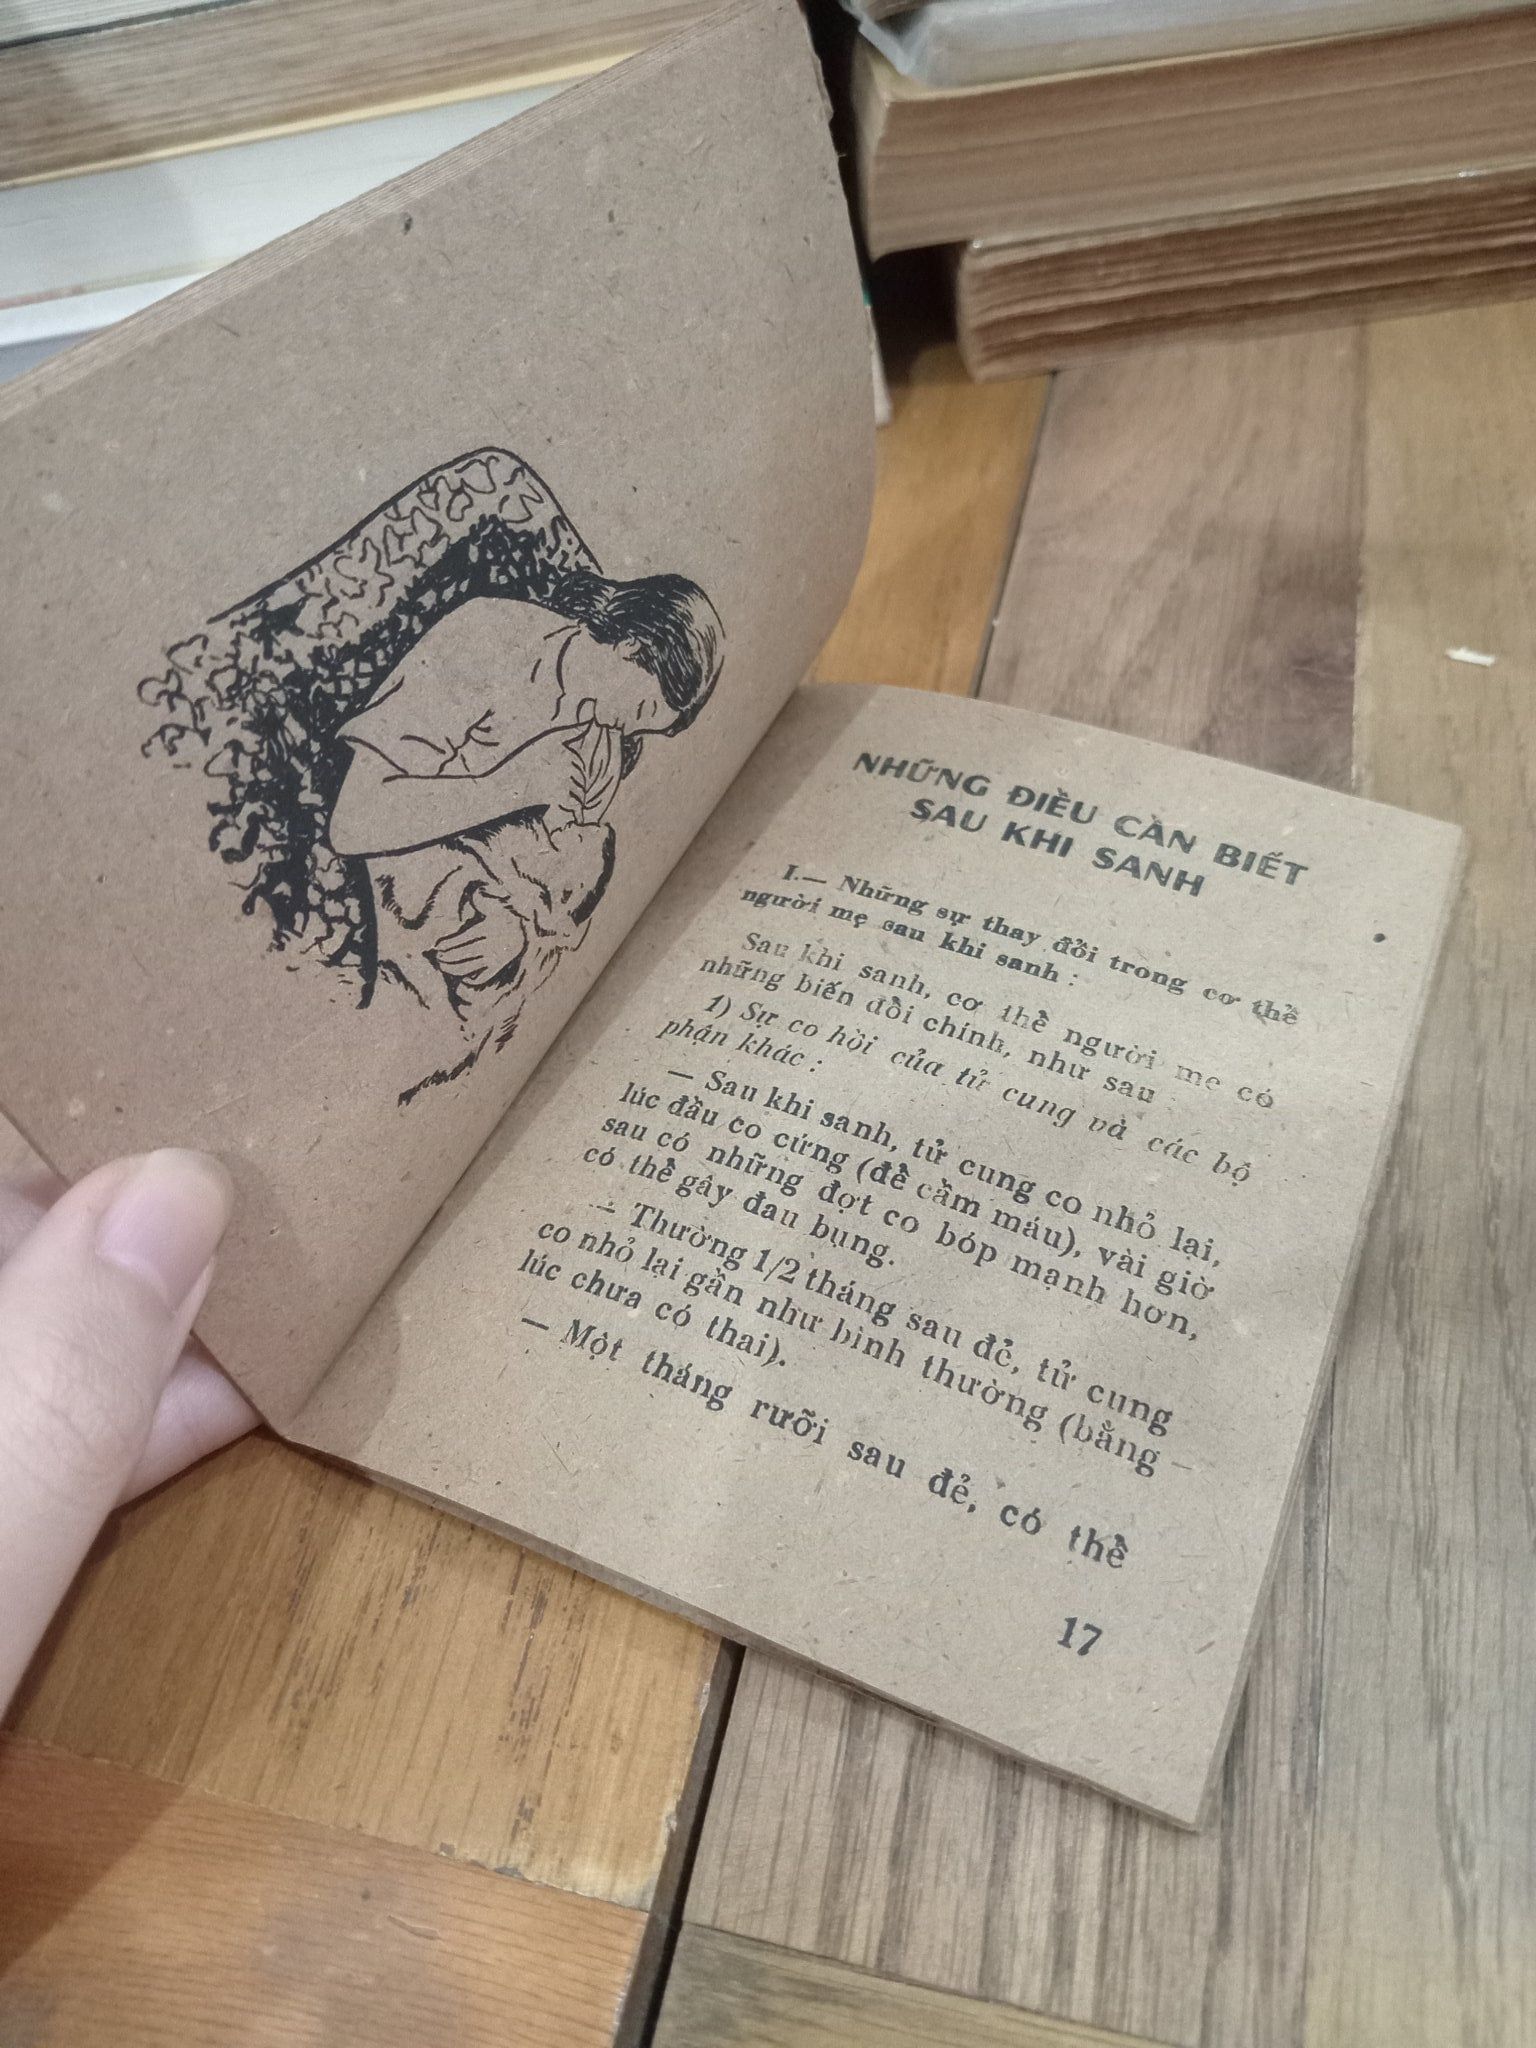 NHỮNG ĐIỀU CẦN BIẾT
SAU KHI SANH
I.— Những sự thay đổi trong cơ thể
người mẹ sau khi sanh :
Sau khi sanh, cơ thể người mẹ có
những biến đổi chính, như sau
1) Sự co hồi của tử cung và các bộ
phận khác :
— Sau khi sanh, tử cung co nhỏ lại,
lúc đầu co cứng (để cầm máu), vài giờ
sau có những đợt co bóp mạnh hơn,
có thể gây đau bụng.
— Thường 1/2 tháng sau đẻ, tử cung
co nhỏ lại gần như bình thường (bằng
lúc chưa có thai).
— Một tháng rưỡi sau đẻ, có thể
17